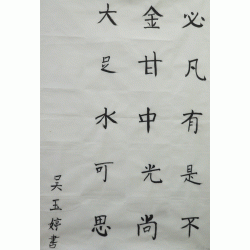 必凡有是不
金甘中光尚
大足水可思
吴玉婷書